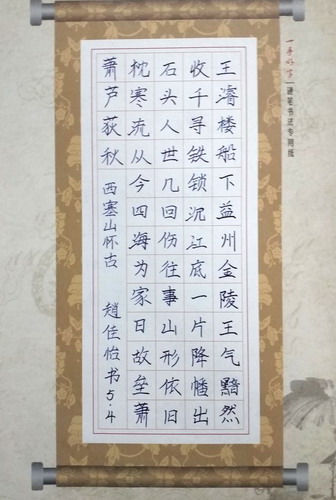 一手好字|硬笔书法专用纸
王濬楼船下益州金陵王气黯然
收千寻铁锁沉江底一片降幡出
石头人世几回伤往事山形依旧
枕寒流从今四海为家日故垒萧
萧芦荻秋 西塞山怀古 趙佳怡书5.4